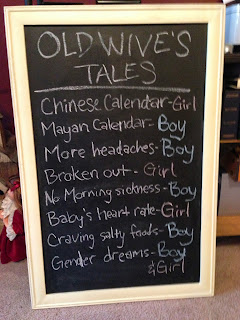 OLD WIVE'S
TALES
Chinese Calendar-Girl
Mayan Calendar-Boy
More headaches-Boy
Broken out - Girl
No Morning sickness-Boy
Baby's heart rate-Girl
Craving salty foods-Boy
Gender dreams-Boy
& Girl